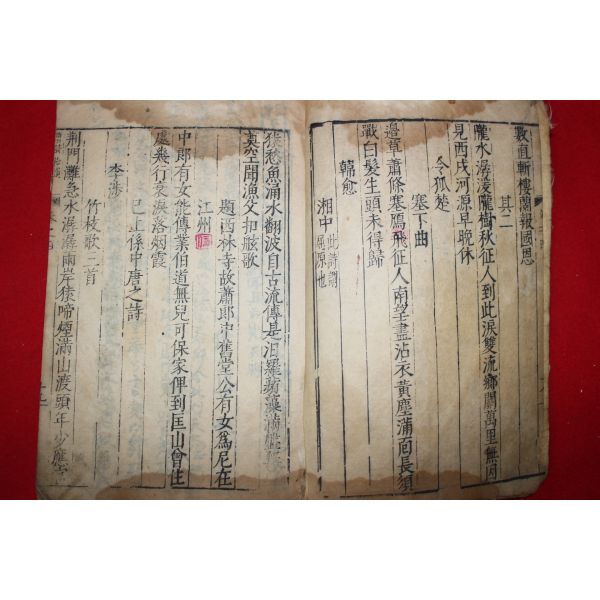 數直斬樓蘭報國恩
其二
隴水潺湲隴樹秋征人到此淚雙流鄉關萬里無因
見西戌河源早晚休
令狐楚
塞下曲
邊草蕭條塞鴈飛征人南望盡沾衣黃塵滿面長須
戰白髮生頭未得歸
韓愈
湘中 此詩謂屈原也
猿愁魚涌水翻波自古流傳是汨羅蘋藻滿盤無
奠空聞漁父扣舷歌
題西林寺故蕭郎中舊堂公有女爲尼在
江州
中郎有女能傳業伯道無兒可保家偶到匡山曾住
處幾行衰淚落烟霞
已上係中唐之詩
李涉
竹枝歌二首
荊門灘急水潺潺兩岸猿啼煙滿山渡頭年少應